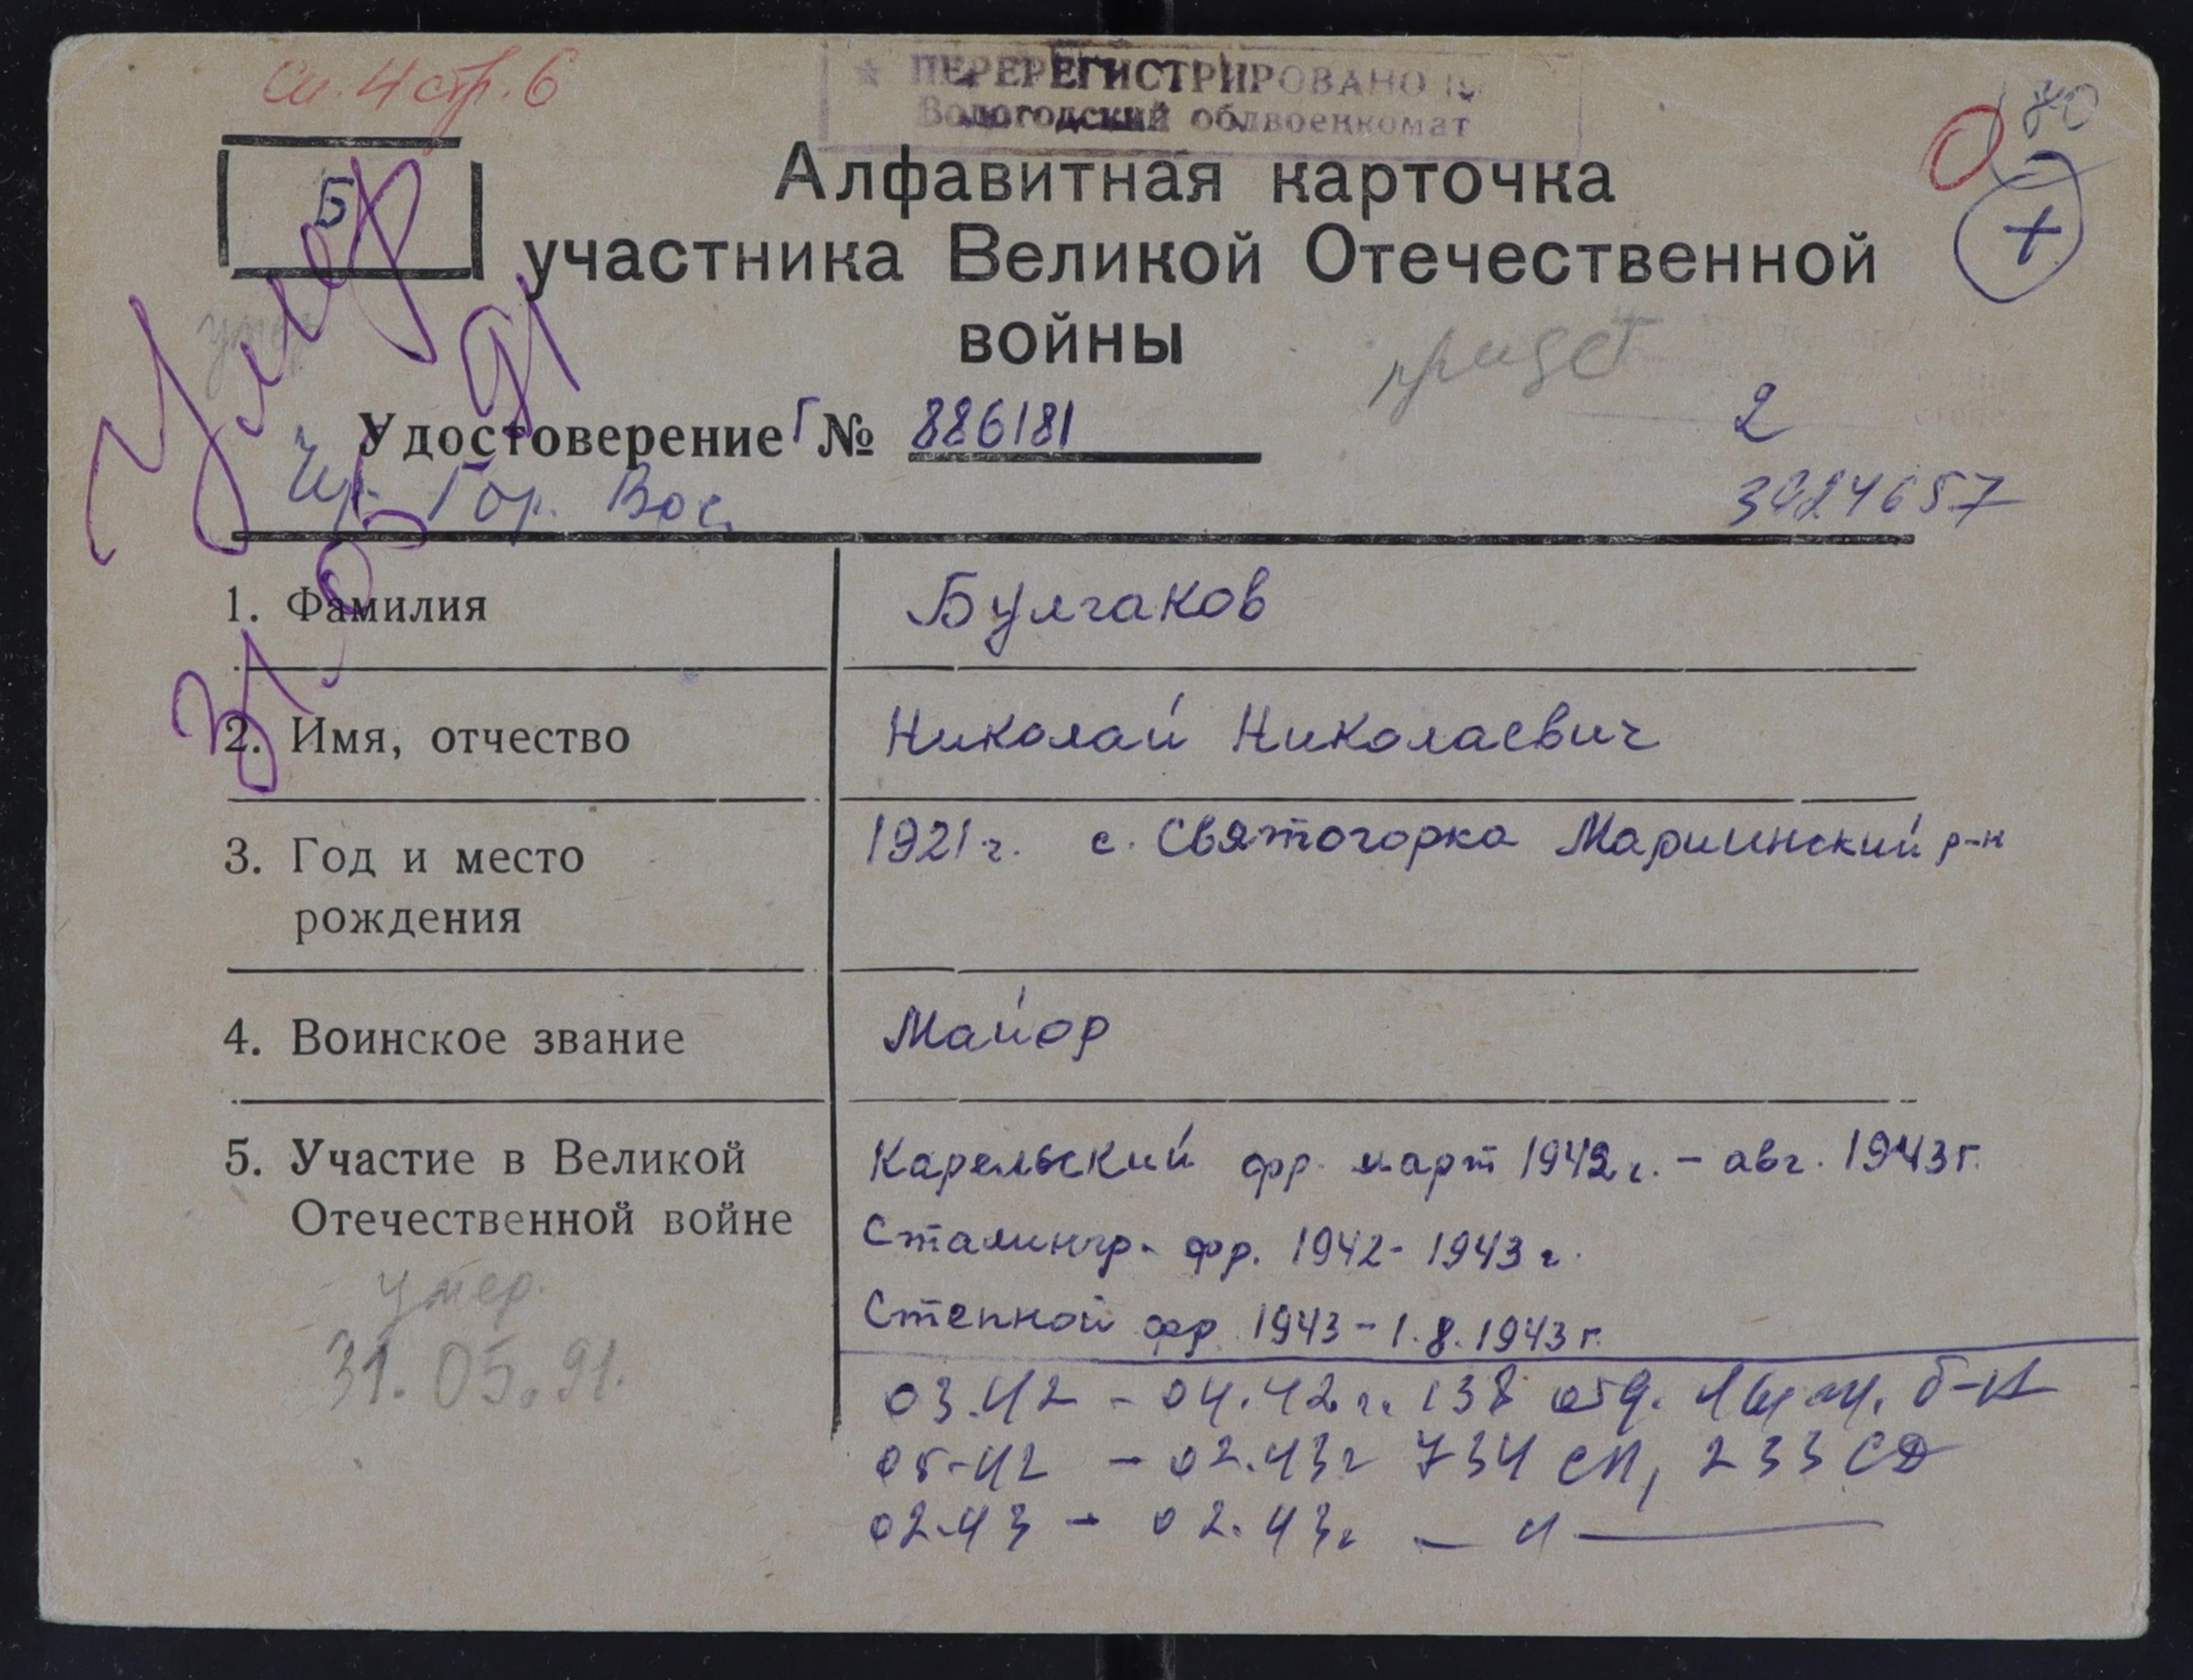 Сп. 4 стр. 6
ПЕРЕРЕГИСТРИРОВАНО
Вологодский облвоенкомат
80
Б
+
Алфавитная карточка
участника Великой Отечественной
войны
умер
Умер
31.05.91
придет
Удостоверение Г № 886181
2
Чер. Гор. Вос.
3024657
1. Фамилия
Булгаков
2. Имя, отчество
Николай Николаевич
3. Год и место
рождения
1921 г. с. Святогорка Мариинский р-н
4. Воинское звание
Майор
5. Участие в Великой
Отечественной войне
Карельский фр. март 1942 г. - авг. 1943 г.
Сталингр. фр. 1942 - 1943 г.
Степной фр. 1943 - 1.8.1943 г.
умер.
31.05.91.
03.42 - 04.42 г. 138 отд. лыжн. б-н
05-42 - 02.43 г 734 сп, 233 СД
02.43 - 02.43 г - " -